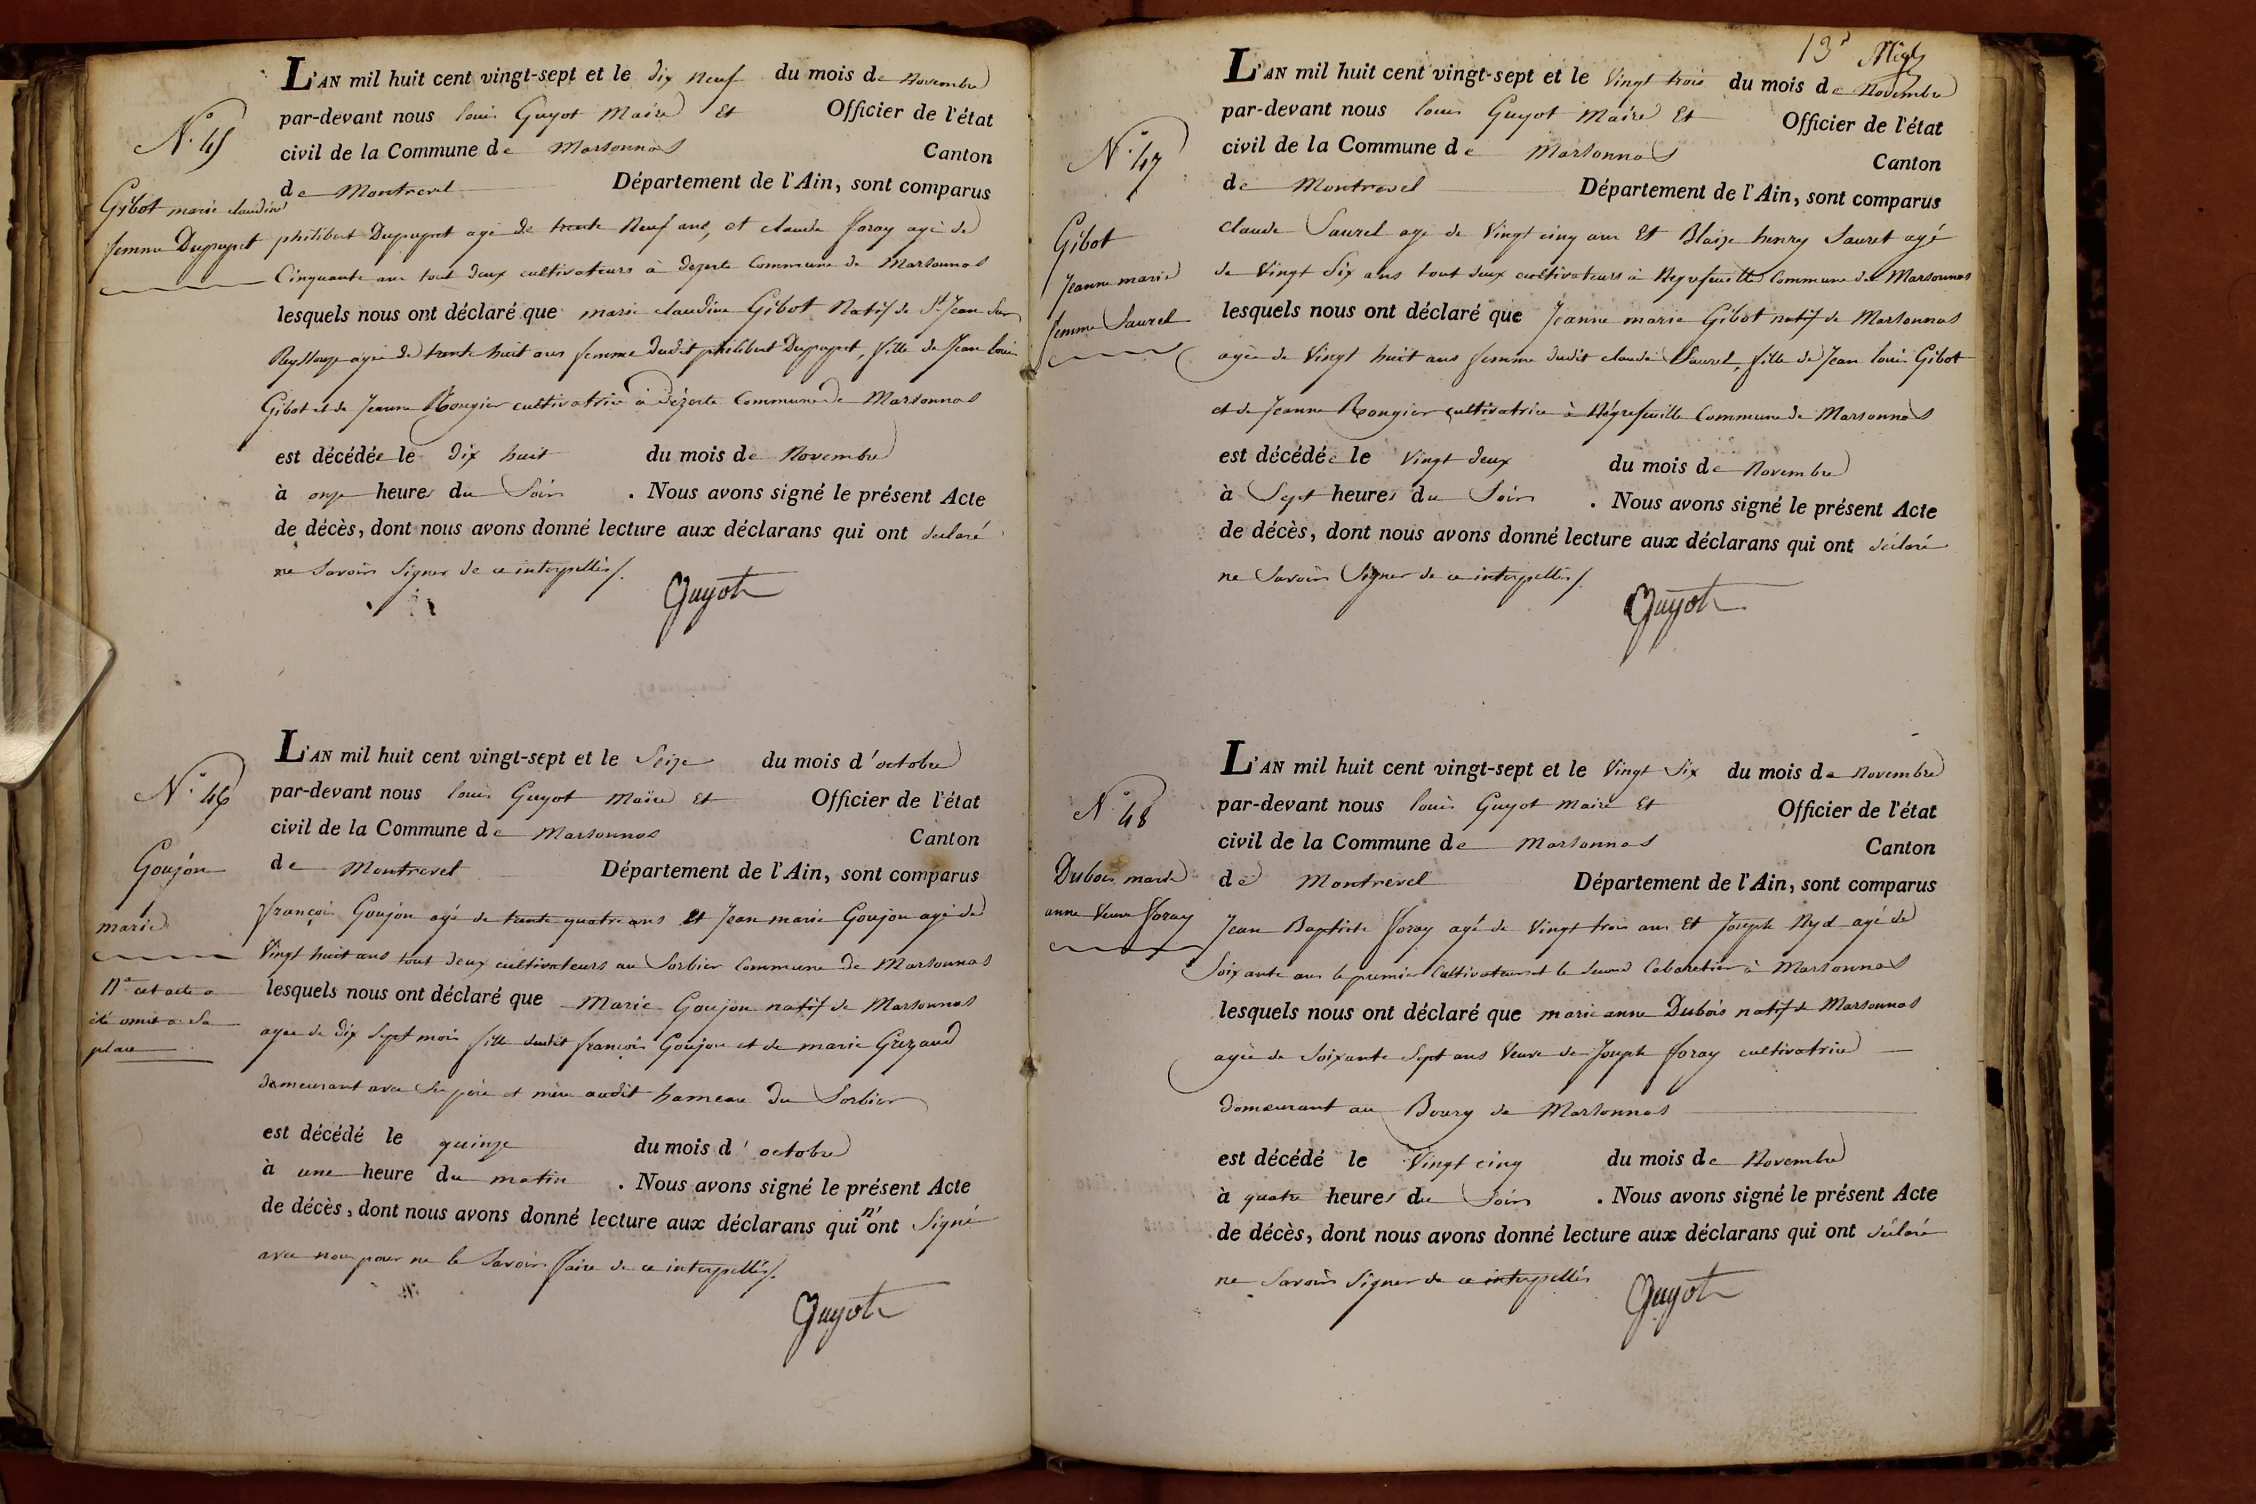 N.° 45
Gibot marie claudine
femme Dupupet
L'AN mil huit cent vingt-sept et le dix neuf du mois de Novembre
par-devant nous louis Guyot Maire Et Officier de l'état
civil de la Commune de Marsonnas Canton
de Montrevel Département de l'Ain, sont comparus
philibert Dupupet agé de trente Neuf ans, et claude foray agé de
Cinquante ans tout deux cultivateurs à dezerte Commune de Marsonnas
lesquels nous ont déclaré que marie claudine Gibot Natif de St Jean Sur
Reyssouze agée de trente huit ans femme dudit philibert Dupupet, fille de Jean louis
Gibot et de Jeanne Rongier cultivatrice à dézerte Commune de Marsonnas
est décédée le dix huit du mois de Novembre
à onze heures du Soir . Nous avons signé le présent Acte
de décès, dont nous avons donné lecture aux déclarans qui ont déclaré
ne Savoir Signer de ce interpellés/.
Guyot
N.° 46
Goujon
marie
Na cet acte a
été omis a Sa
place
L'AN mil huit cent vingt-sept et le Seize du mois d'octobre
par-devant nous louis Guyot Maire Et Officier de l'état
civil de la Commune de Marsonnas Canton
de Montrevel Département de l'Ain, sont comparus
françois Goujon agé de trente quatre ans Et Jean marie Goujon agé de
Vingt huit ans tout deux cultivateurs au Sorbier Commune de Marsonnas
lesquels nous ont déclaré que Marie Goujon natif de Marsonnas
agée de dix Sept mois fille dudit françois Goujon et de marie
demeurant avec Ses père et mère audit hameau du Sorbier
est décédé le quinze du mois d'octobre
à une heure du matin . Nous avons signé le présent Acte
de décès, dont nous avons donné lecture aux déclarans qui n'ont Signé
avec nous pour ne le Savoir faire de ce interpellés/.
Guyot
13e
N.° 47
Gibot
Jeanne marie
femme Saurel
L'AN mil huit cent vingt-sept et le Vingt trois du mois de Novembre
par-devant nous louis Guyot Maire Et Officier de l'état
civil de la Commune de Marsonnas Canton
de Montrevel Département de l'Ain, sont comparus
claude Saurel agé de Vingt cinq ans Et Blaize henry Sauret agé
de Vingt Six ans tout deux cultivateurs à Commune de Marsonnas
lesquels nous ont déclaré que Jeanne marie Gibot natif de Marsonnas
agée de Vingt huit ans femme dudit claude Saurel, fille de Jean louis Gibot
et de Jeanne Rongier cultivatrice à Commune de Marsonnas
est décédée le Vingt deux du mois de Novembre
à Sept heures du Soir . Nous avons signé le présent Acte
de décès, dont nous avons donné lecture aux déclarans qui ont déclaré
ne Savoir Signer de ce interpellés/.
Guyot
N° 48
Dubois marie
anne Veuve foray
L'AN mil huit cent vingt-sept et le Vingt Six du mois de Novembre
par-devant nous louis Guyot Maire Et Officier de l'état
civil de la Commune de Marsonnas Canton
de Montrevel Département de l'Ain, sont comparus
Jean Baptiste foray agé de Vingt trois ans Et Joseph Nyd agé de
Soixante ans le premier Cultivateur et le Second Cabaretier à Marsonnas
lesquels nous ont déclaré que marie anne Dubois natif de Marsonnas
agée de Soixante Sept ans Veuve de Joseph foray cultivatrice
demeurant au Bourg de Marsonnas
est décédé le Vingt cinq du mois de Novembre
à quatre heures du Soir . Nous avons signé le présent Acte
de décès, dont nous avons donné lecture aux déclarans qui ont déclaré
ne Savoir Signer de ce interpellés
Guyot